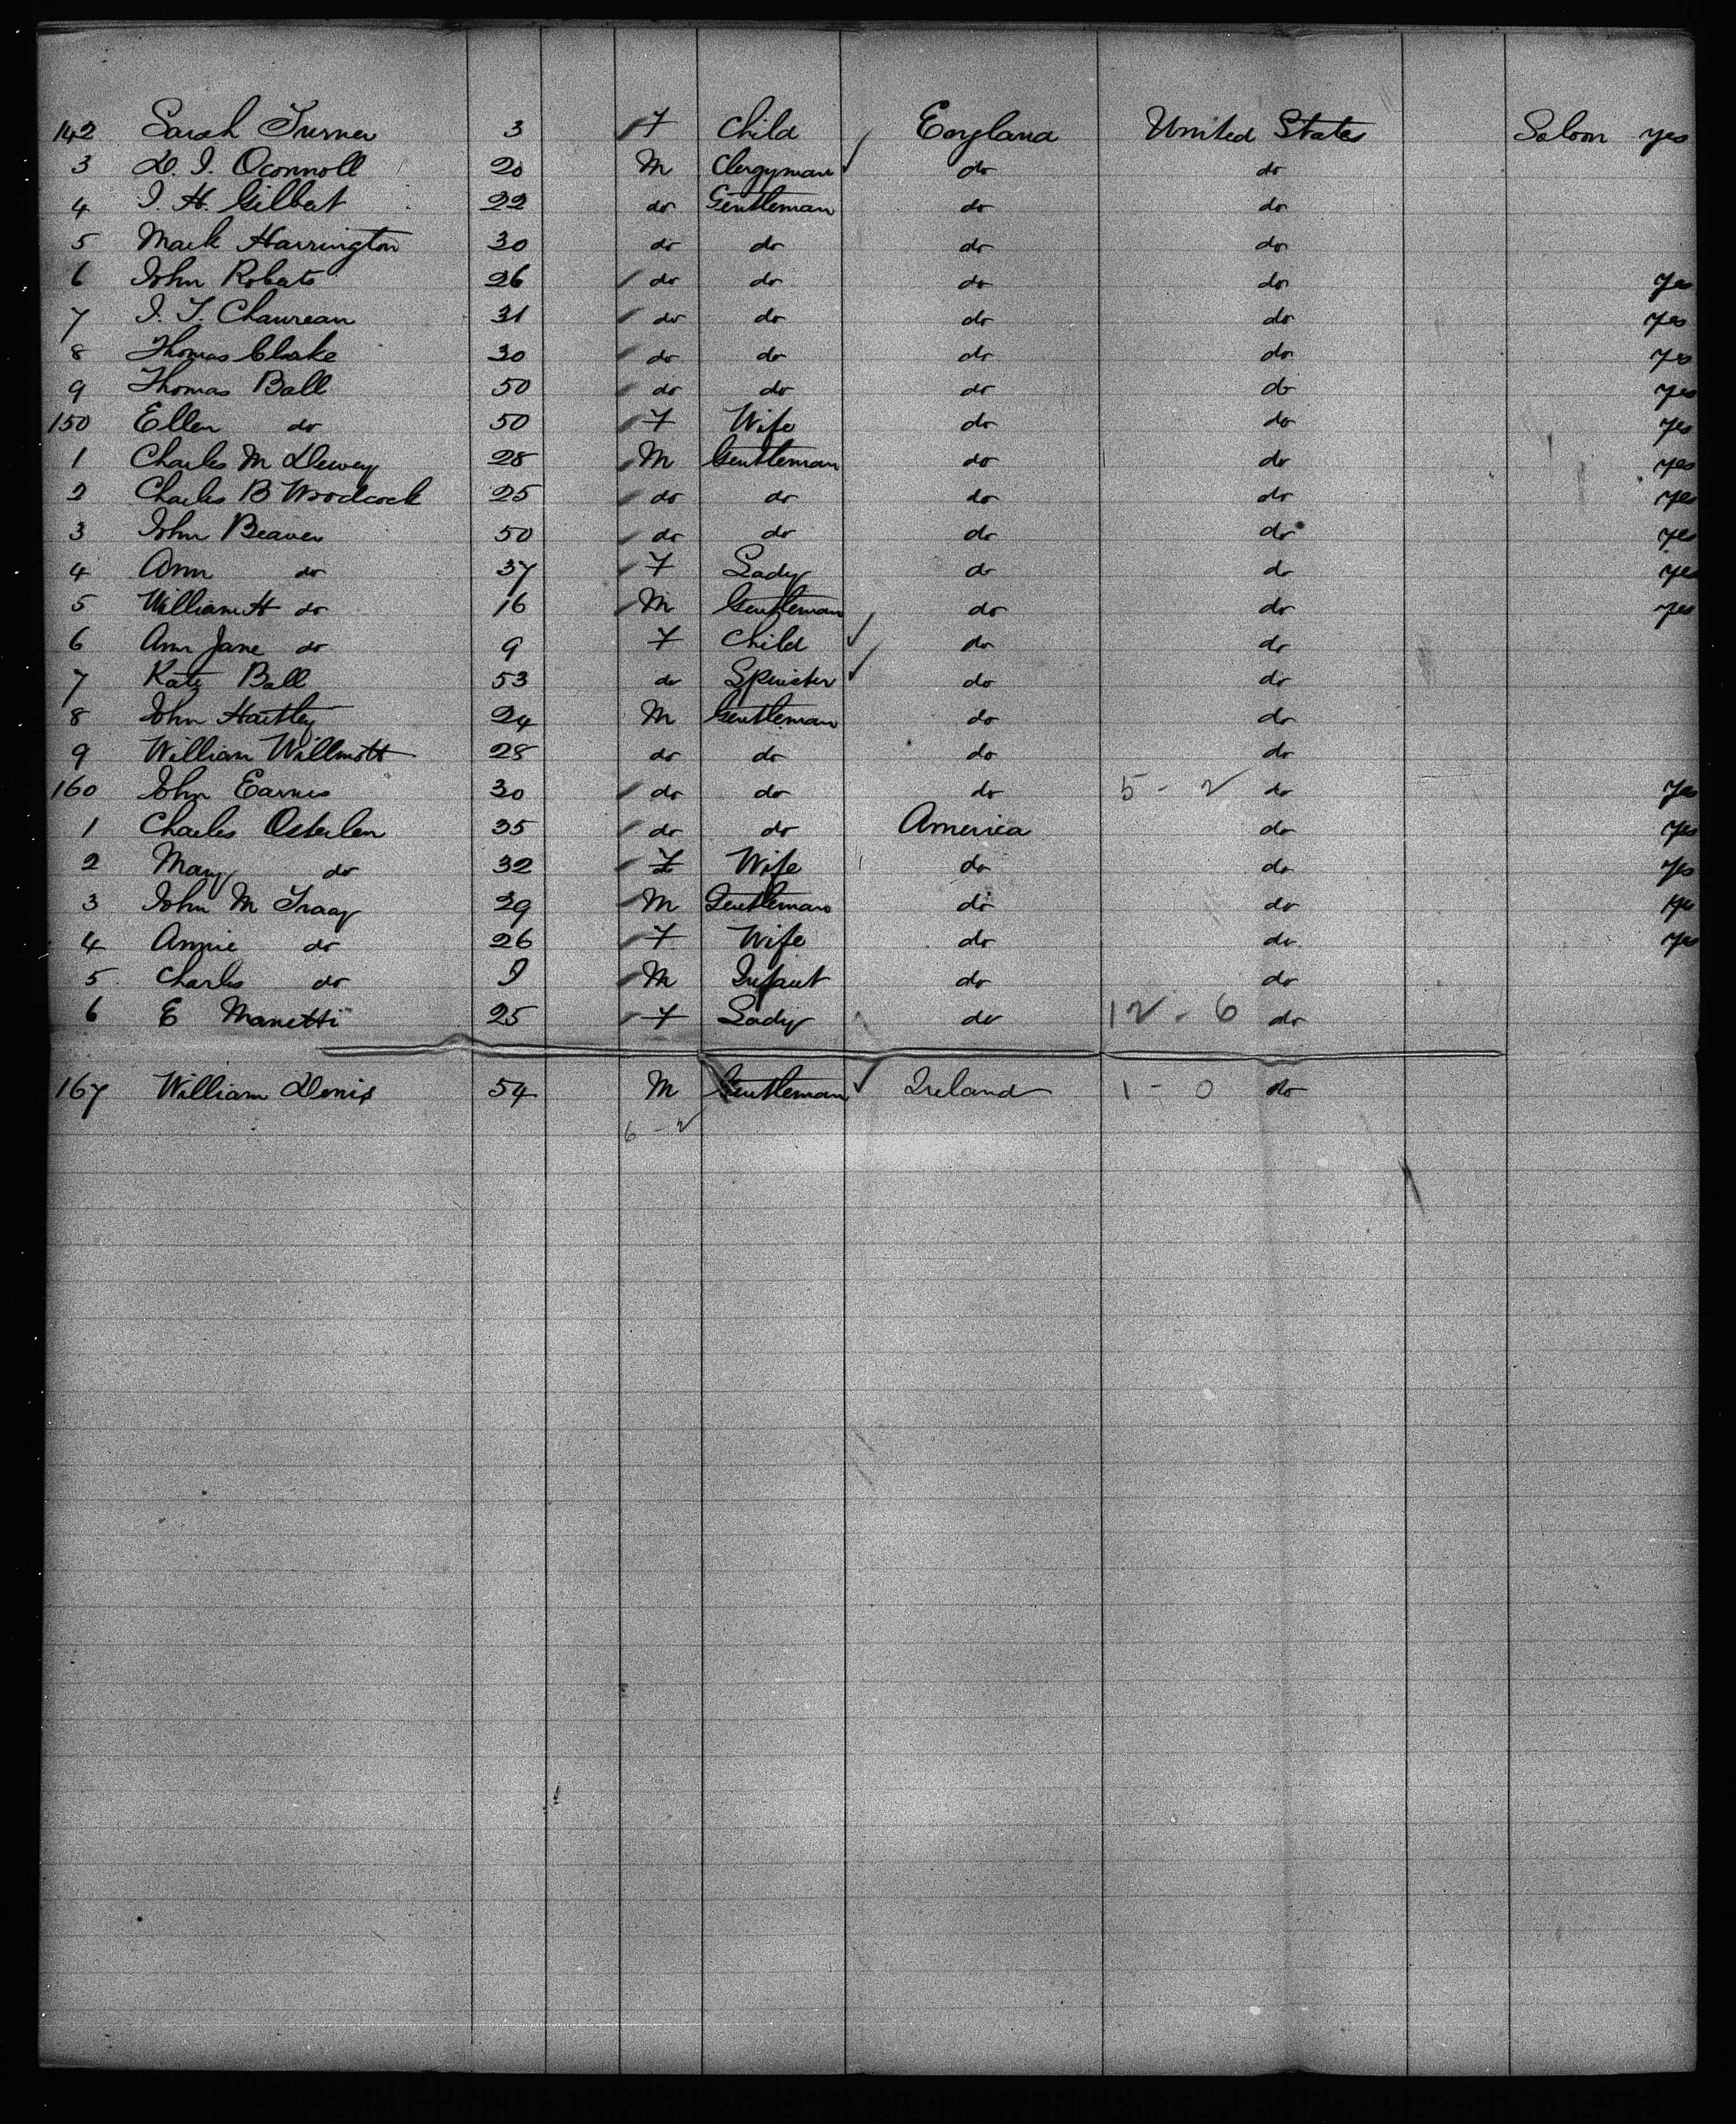 142 Sarah Turner 3 F Child England United States Saloon yes
3 D. I. Oconnoll 20 M Clergyman do do
4 I. H. Gilbert 22 do Gentleman do do
5 Mark Harrington 30 do do do do
6 John Roberts 26 do do do do yes
7 I. T. Chaurean 31 do do do do yes
8 Thomas Clake 30 do do do do yes
9 Thomas Ball 50 do do do do yes
150 Ellen do 50 F Wife do do yes
1 Charles M Dewey 28 M Gentleman do do yes
2 Charles B Woodcock 25 do do do do yes
3 John Beaver 50 do do do do yes
4 Ann do 37 F Lady do do yes
5 William H do 16 M Gentleman do do yes
6 Ann Jane do 9 F Child do do
7 Kate Ball 53 do Spinster do do
8 John Hartley 24 M Gentleman do do
9 William Willmott 28 do do do do
160 John Earnes 30 do do do 5 - 2 do yes
1 Charles Osterlen 35 do do America do yes
2 Mary do 32 F Wife do do yes
3 John M Traay 29 M Gentleman do do yes
4 Annie do 26 F Wife do do yes
5 Charles do I M Infant do do
6 E Manetti 25 F Lady do 12 - 6 do
167 William Denis 54 M Gentleman Ireland 1 - 0 do
6 - 2